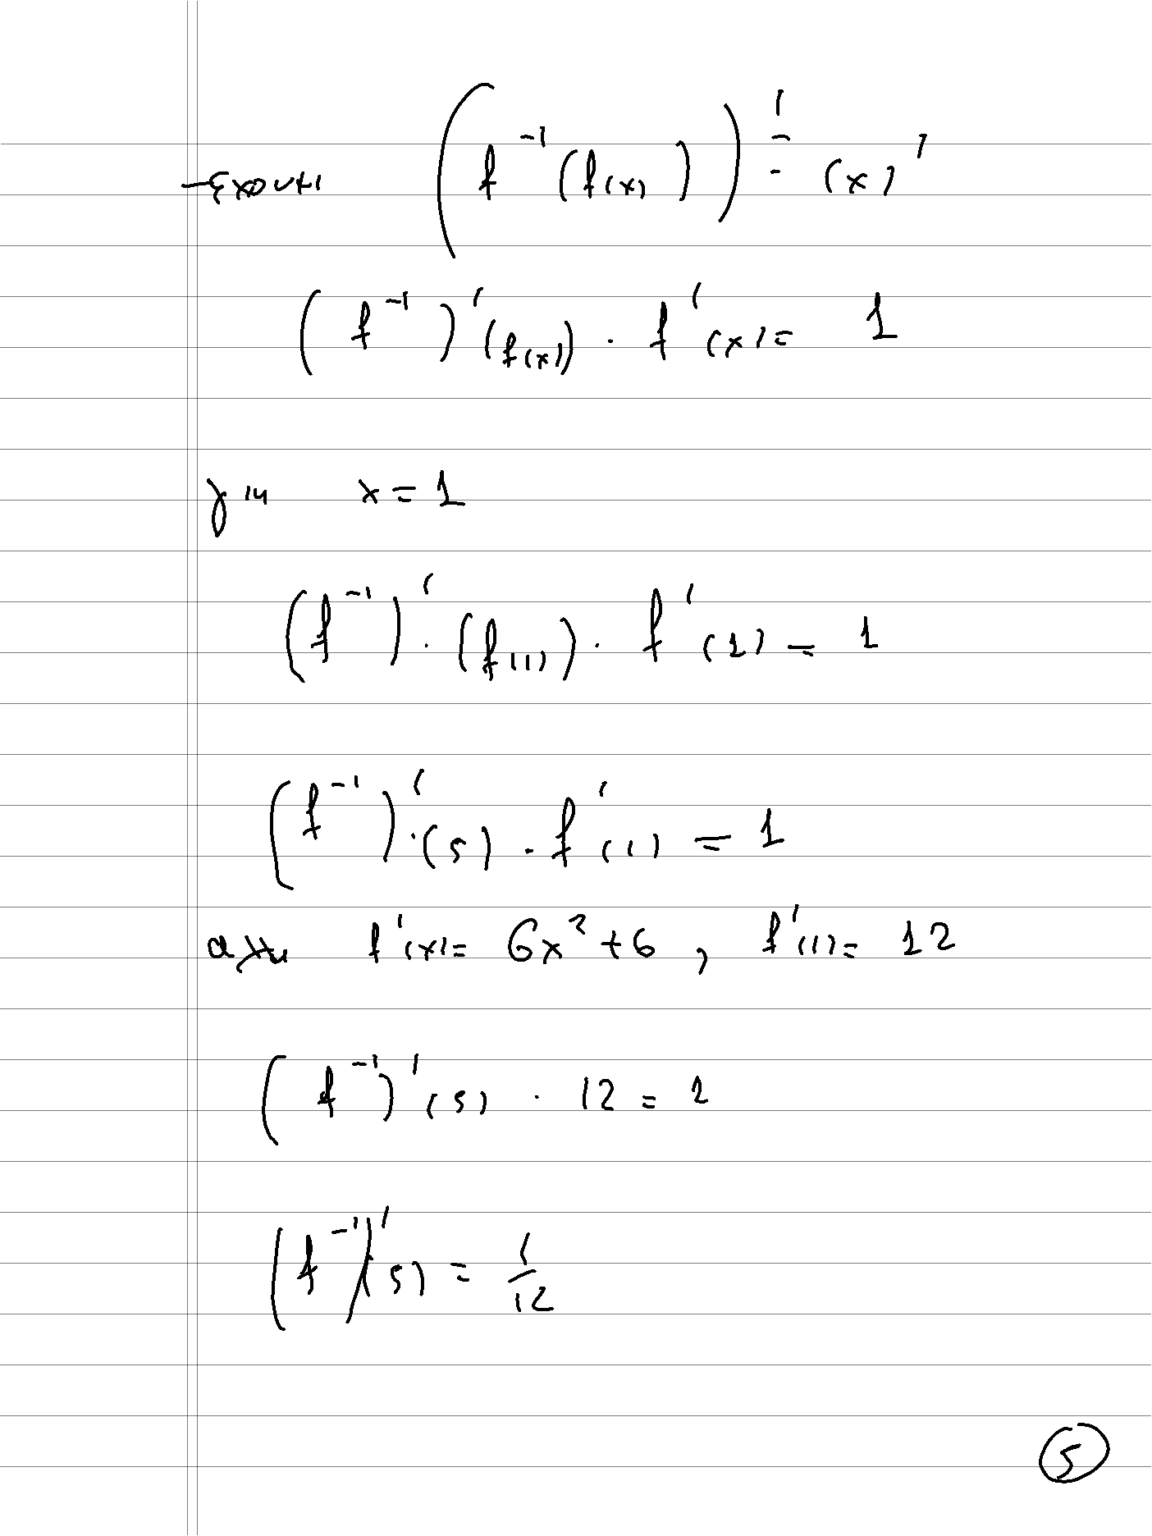 Έχουμε (f⁻¹(f(x)))' = (x)'
(f⁻¹)'(f(x)) · f'(x) = 1
για x = 1
(f⁻¹)' · (f(1)) · f'(1) = 1
(f⁻¹)' · (5) · f'(1) = 1
αλλά f'(x) = 6x² + 6 , f'(1) = 12
(f⁻¹)'(5) · 12 = 1
(f⁻¹)'(5) = 1/12
5